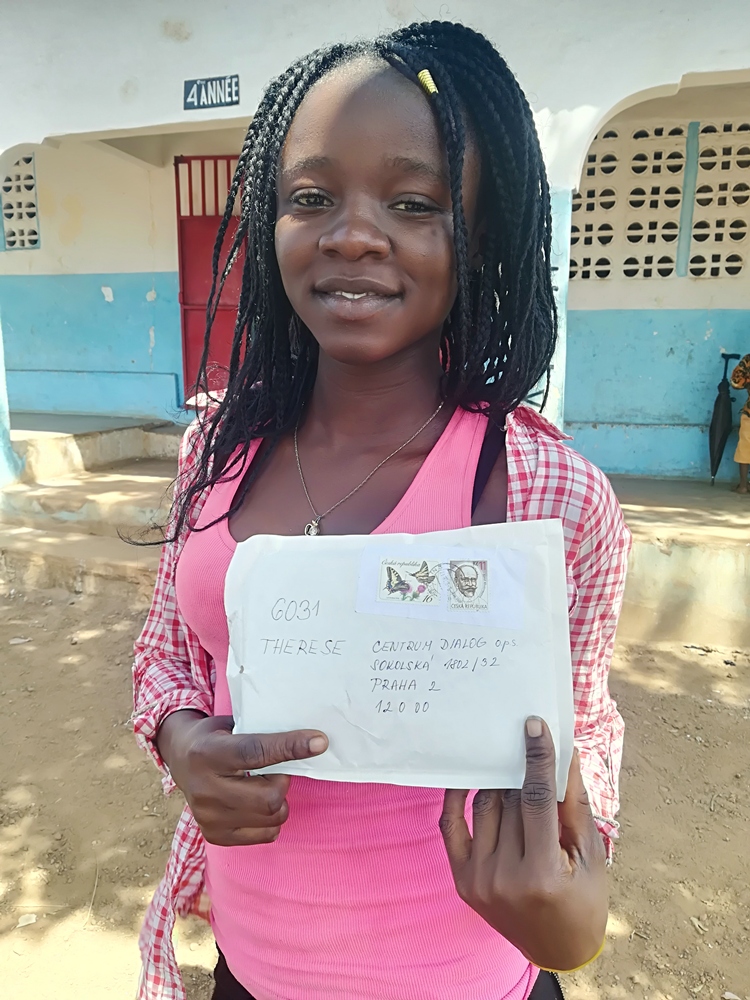 4ème ANNÉE
Česká republika
16
ČESKÁ REPUBLIKA
6031
THERESE
CENTRUM DIALOG ops
SOKOLSKÁ 1802/32
PRAHA 2
120 00